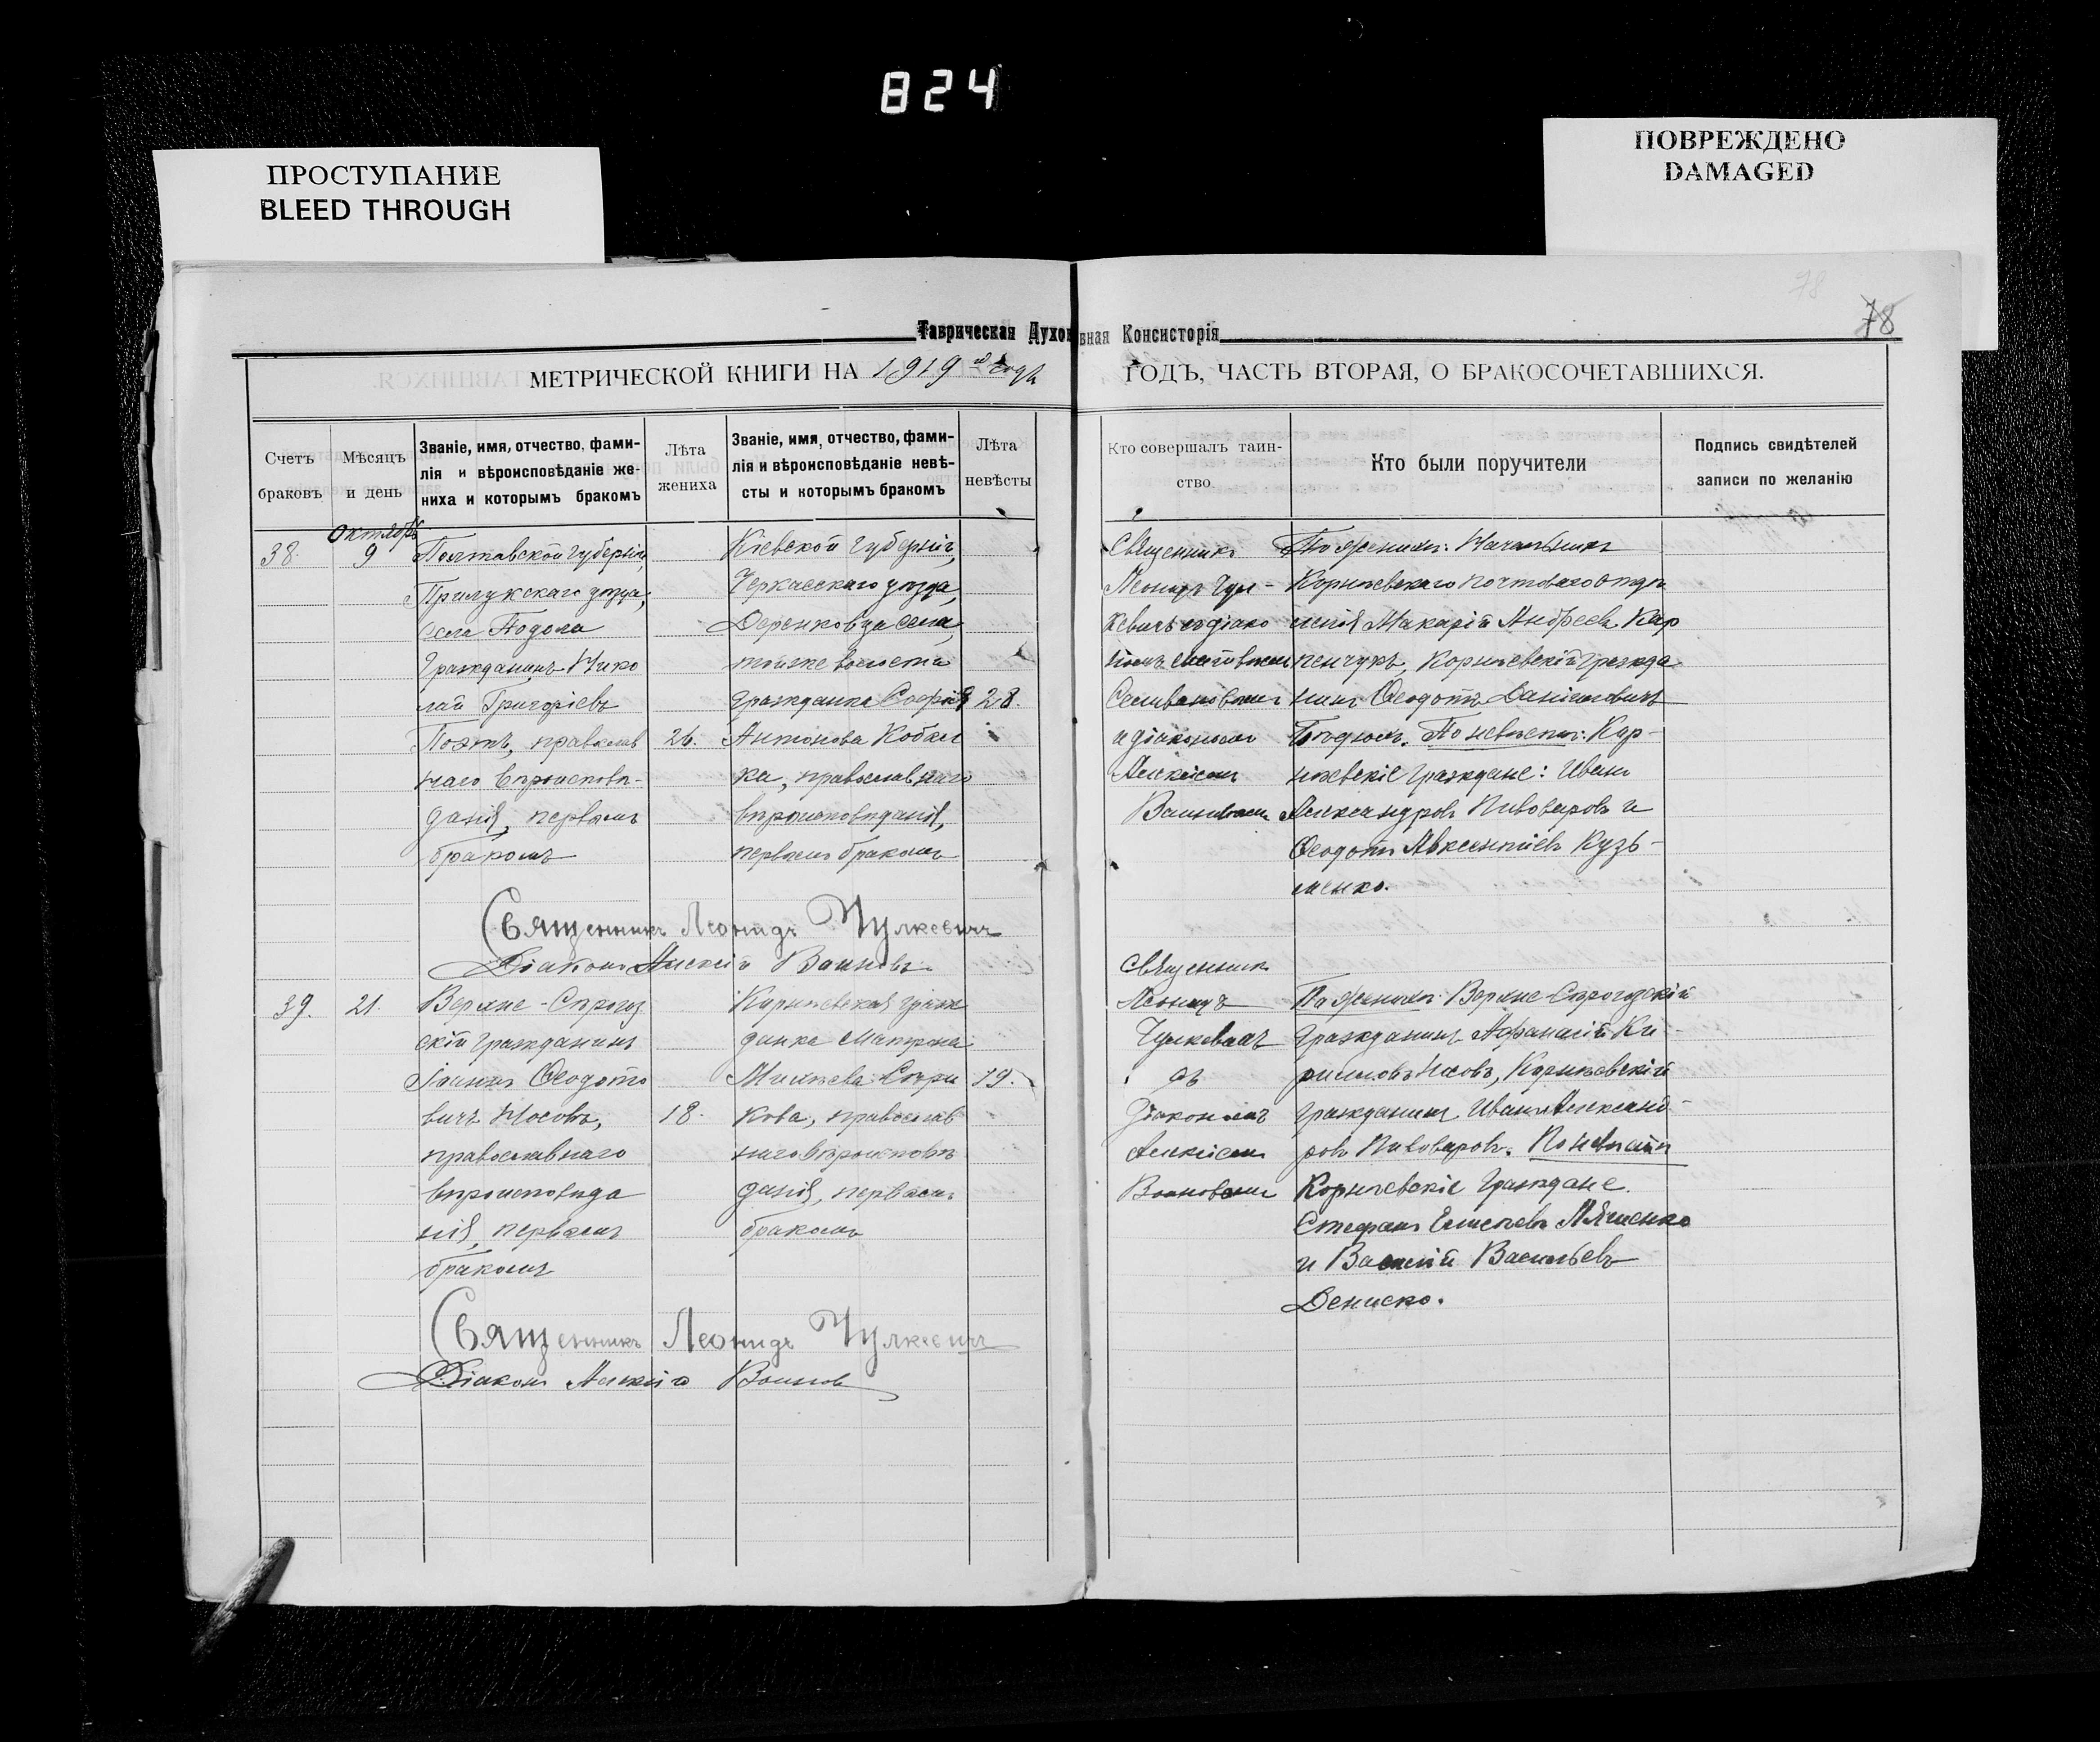 824
ПРОСТУПАНИЕ
BLEED THROUGH
ПОВРЕЖДЕНО
DAMAGED
78
78
Таврическая Духовная Консисторія
МЕТРИЧЕСКОЙ КНИГИ НА 1919 й годъ
ГОДЪ, ЧАСТЬ ВТОРАЯ, О БРАКОСОЧЕТАВШИХСЯ.
Счетъ
браковъ
Мѣсяцъ
и день
Званіе, имя, отчество, фами-
лія и вѣроисповѣданіе же-
ниха и которымъ бракомъ
Лѣта
жениха
Званіе, имя, отчество, фами-
лія и вѣроисповѣданіе невѣ-
сты и которымъ бракомъ
Лѣта
невѣсты
Кто совершалъ таин-
ство.
Кто были поручители
Подпись свидѣтелей
записи по желанію
38.
Октябрь
9
Полтавской губерніи,
Прилукскаго уѣзда,
села Подола
Гражданинъ Нико
лай Григоріевъ
Поэтъ, православ
наго вѣроисповѣ-
данія, первымъ
бракомъ
26.
Кіевской губерніи,
Черкасскаго уѣзда,
Деренковца села,
той же волости
гражданка Софія
Антонова Кобал
ка, православнаго
вѣроисповѣданія,
первымъ бракомъ
28.
Священникъ
Леонидъ Чул-
кевичъ съ діако
номъ
Селивановымъ
и діакономъ
Алексіемъ
Воиновымъ
По женихѣ: Начальникъ
Корнѣевскаго почтоваго отдѣ
ленія Макарій Андреевъ Кар
пенчукъ, Корнѣевскій гражда
нинъ Ѳеодотъ Даніиловичъ
По невѣстѣ: Кор-
нѣевскіе граждане: Иванъ
Александровъ Пивоваровъ и
Ѳеодотъ Авксентіевъ Кузь-
менко.
Священникъ Леонидъ Чулкевичъ
Діаконъ Алексій Воиновъ
39.
21.
Верхне-Сѣрогоз
скій гражданинъ
Іоаннъ Ѳеодото
вичъ Носовъ,
православнаго
вѣроисповѣда
нія, первымъ
бракомъ
18.
Корнѣевская граж
данка Матрона
Михѣева Спѣри
кова, православ
наго вѣроисповѣ
данія, первымъ
бракомъ
19.
Священникъ
Леонидъ
Чулкевичъ
съ
діакономъ
Алексіемъ
Воиновымъ
По женихѣ: Верхне-Сѣрогозскій
гражданинъ Аѳанасій Ки-
рилловъ Носовъ, Корнѣевскій
гражданинъ Иванъ Александ-
ровъ Пивоваровъ. По невѣстѣ
Корнѣевскіе граждане.
Стефанъ Елисѣевъ Лященко
и Василій Васильевъ
Дениско.
Священникъ Леонидъ Чулкевичъ
Діаконъ Алексій Воиновъ